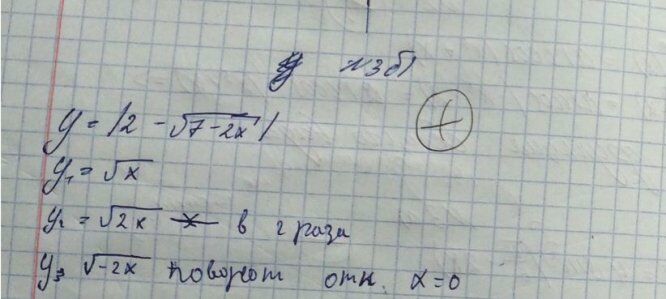 у №3б)
y = |2 - √7-2x|
y₁ = √x
y₂ = √2x x в 2 раза
y₃ √-2x поворот отн. x=0